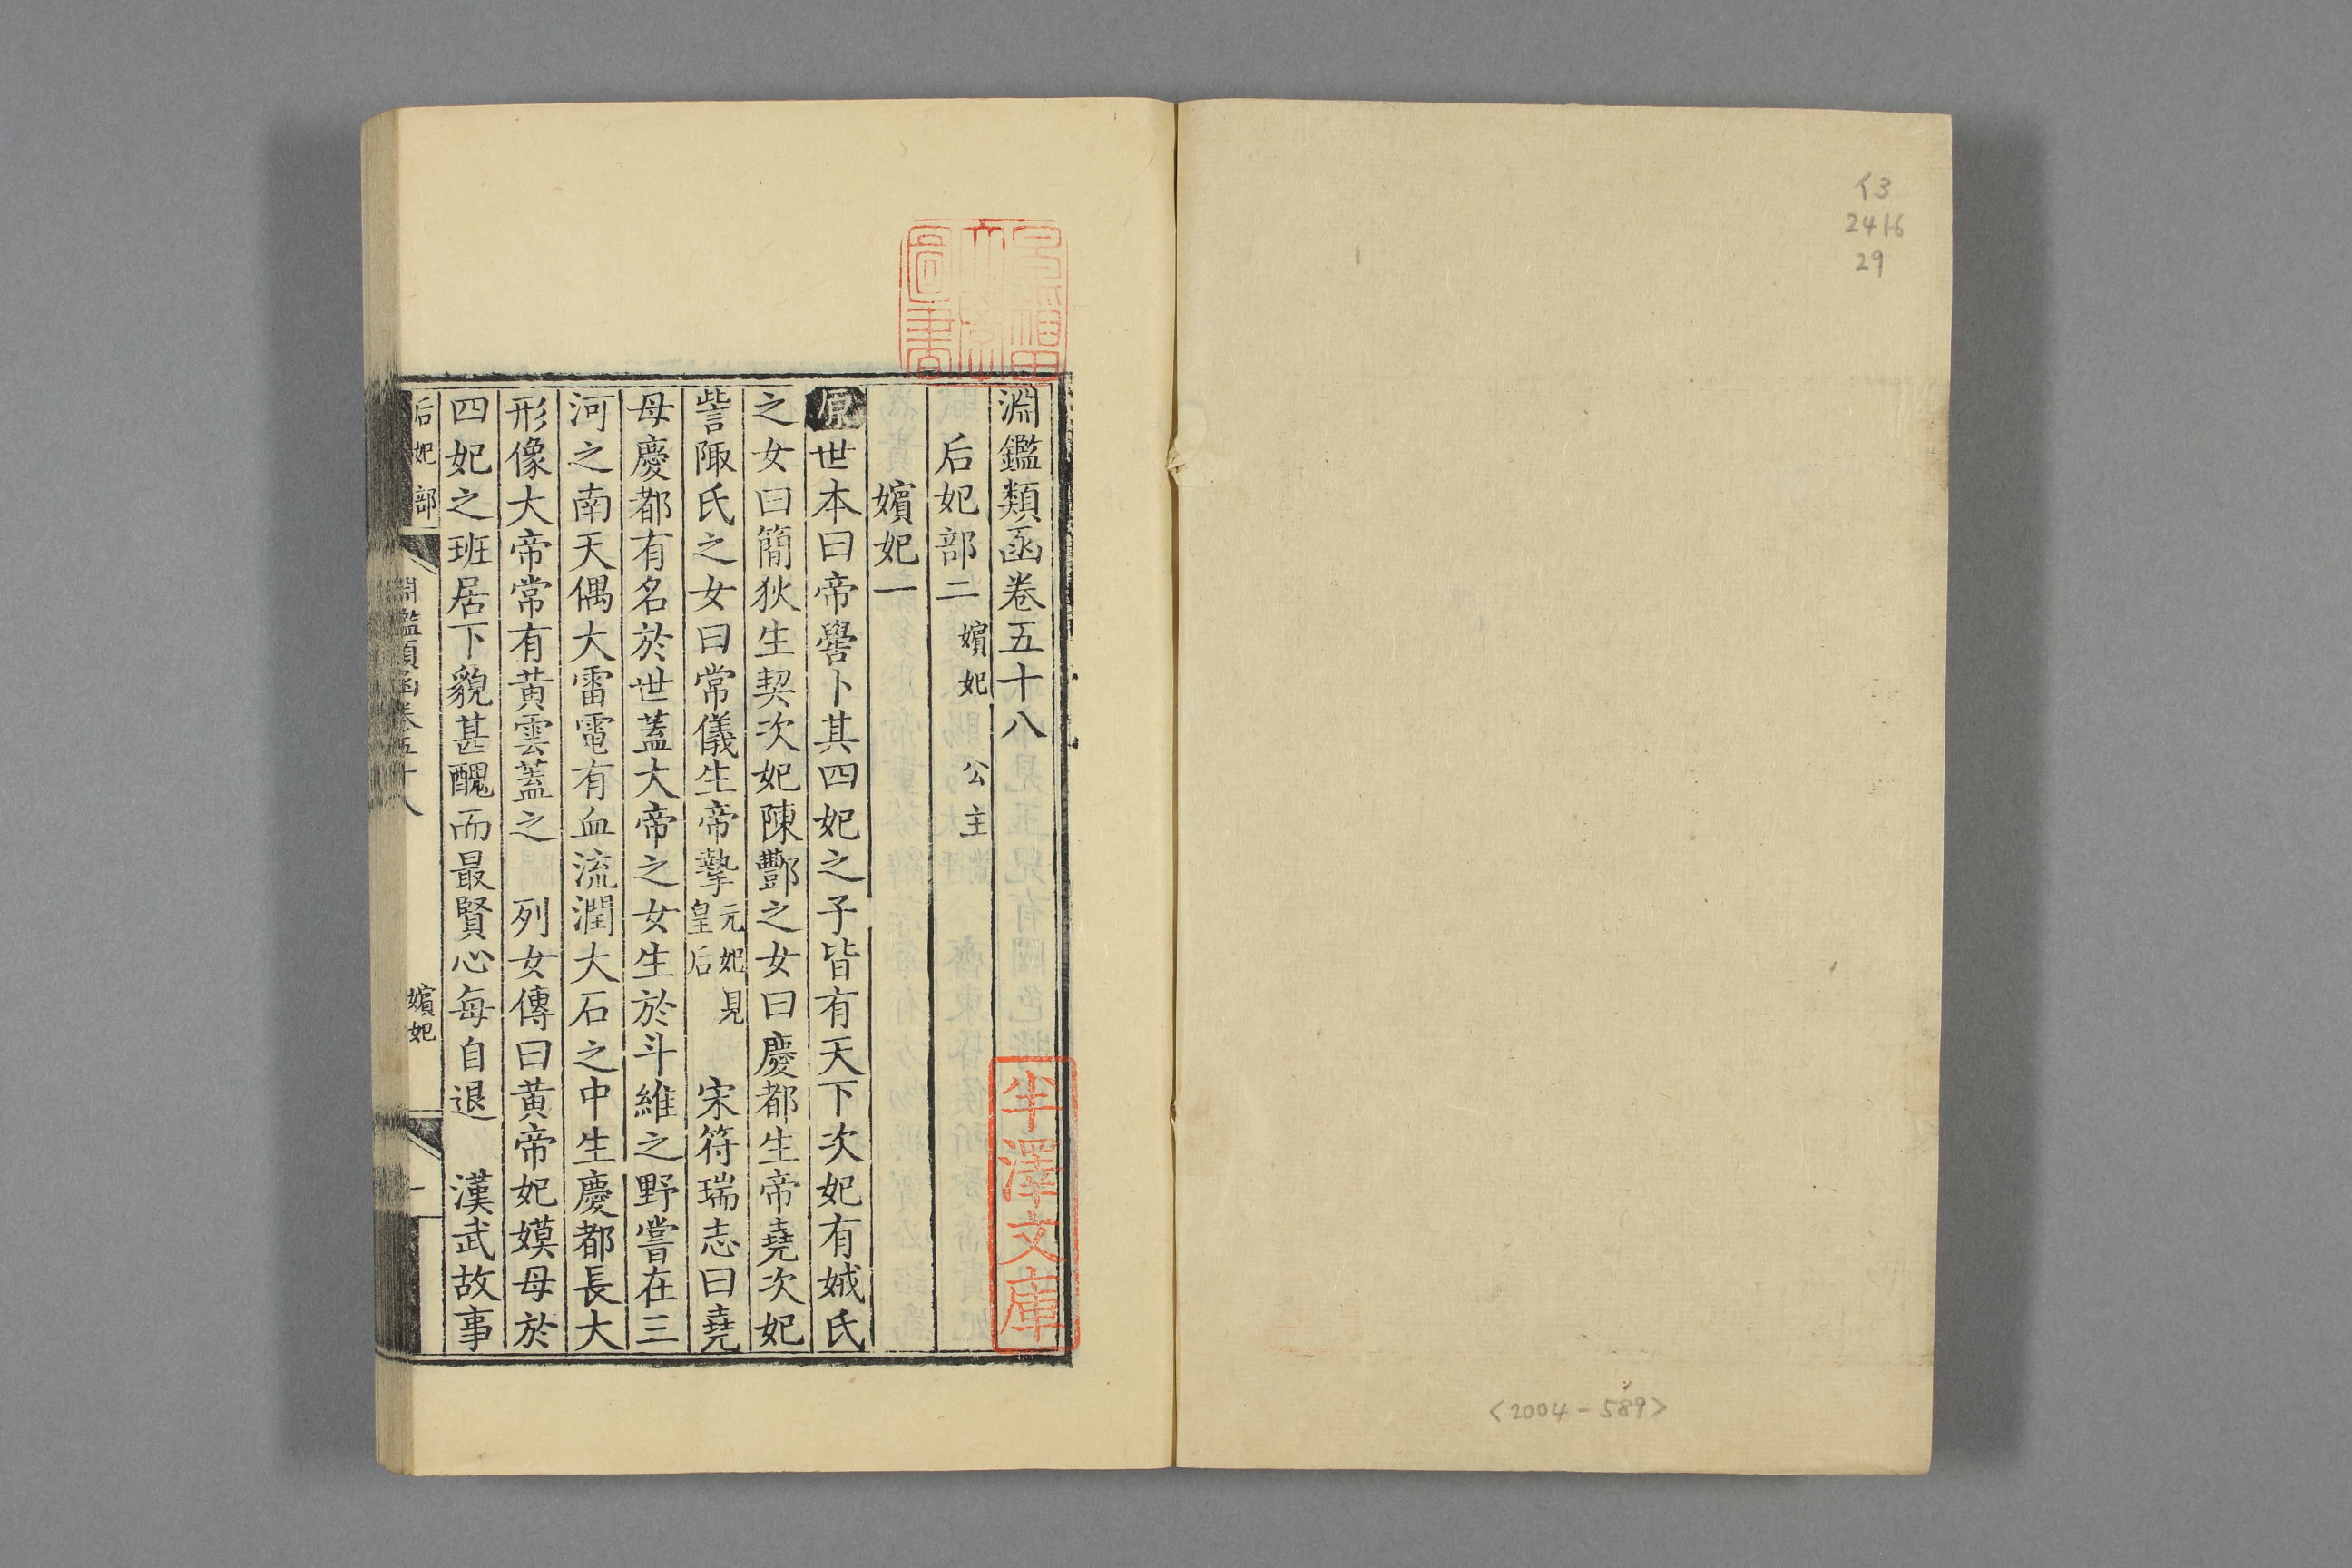 イ3
2416
29
<2004-589>
早稲田
大学
圖書
半澤文庫
淵鑑類函卷五十八
后妃部二 嬪妃 公主
嬪妃一
原世本曰帝嚳卜其四妃之子皆有天下次妃有娀氏
之女曰簡狄生契次妃陳酆之女曰慶都生帝堯次妃
訾陬氏之女曰常儀生帝摯元妃見皇后 宋符瑞志曰堯
母慶都有名於世蓋大帝之女生於斗維之野嘗在三
河之南天偶大雷電有血流潤大石之中生慶都長大
形像大帝常有黃雲蓋之 列女傳曰黃帝妃嫫母於
四妃之班居下貌甚醜而最賢心每自退 漢武故事
后妃部 淵鑑類函卷五十八 嬪妃 一